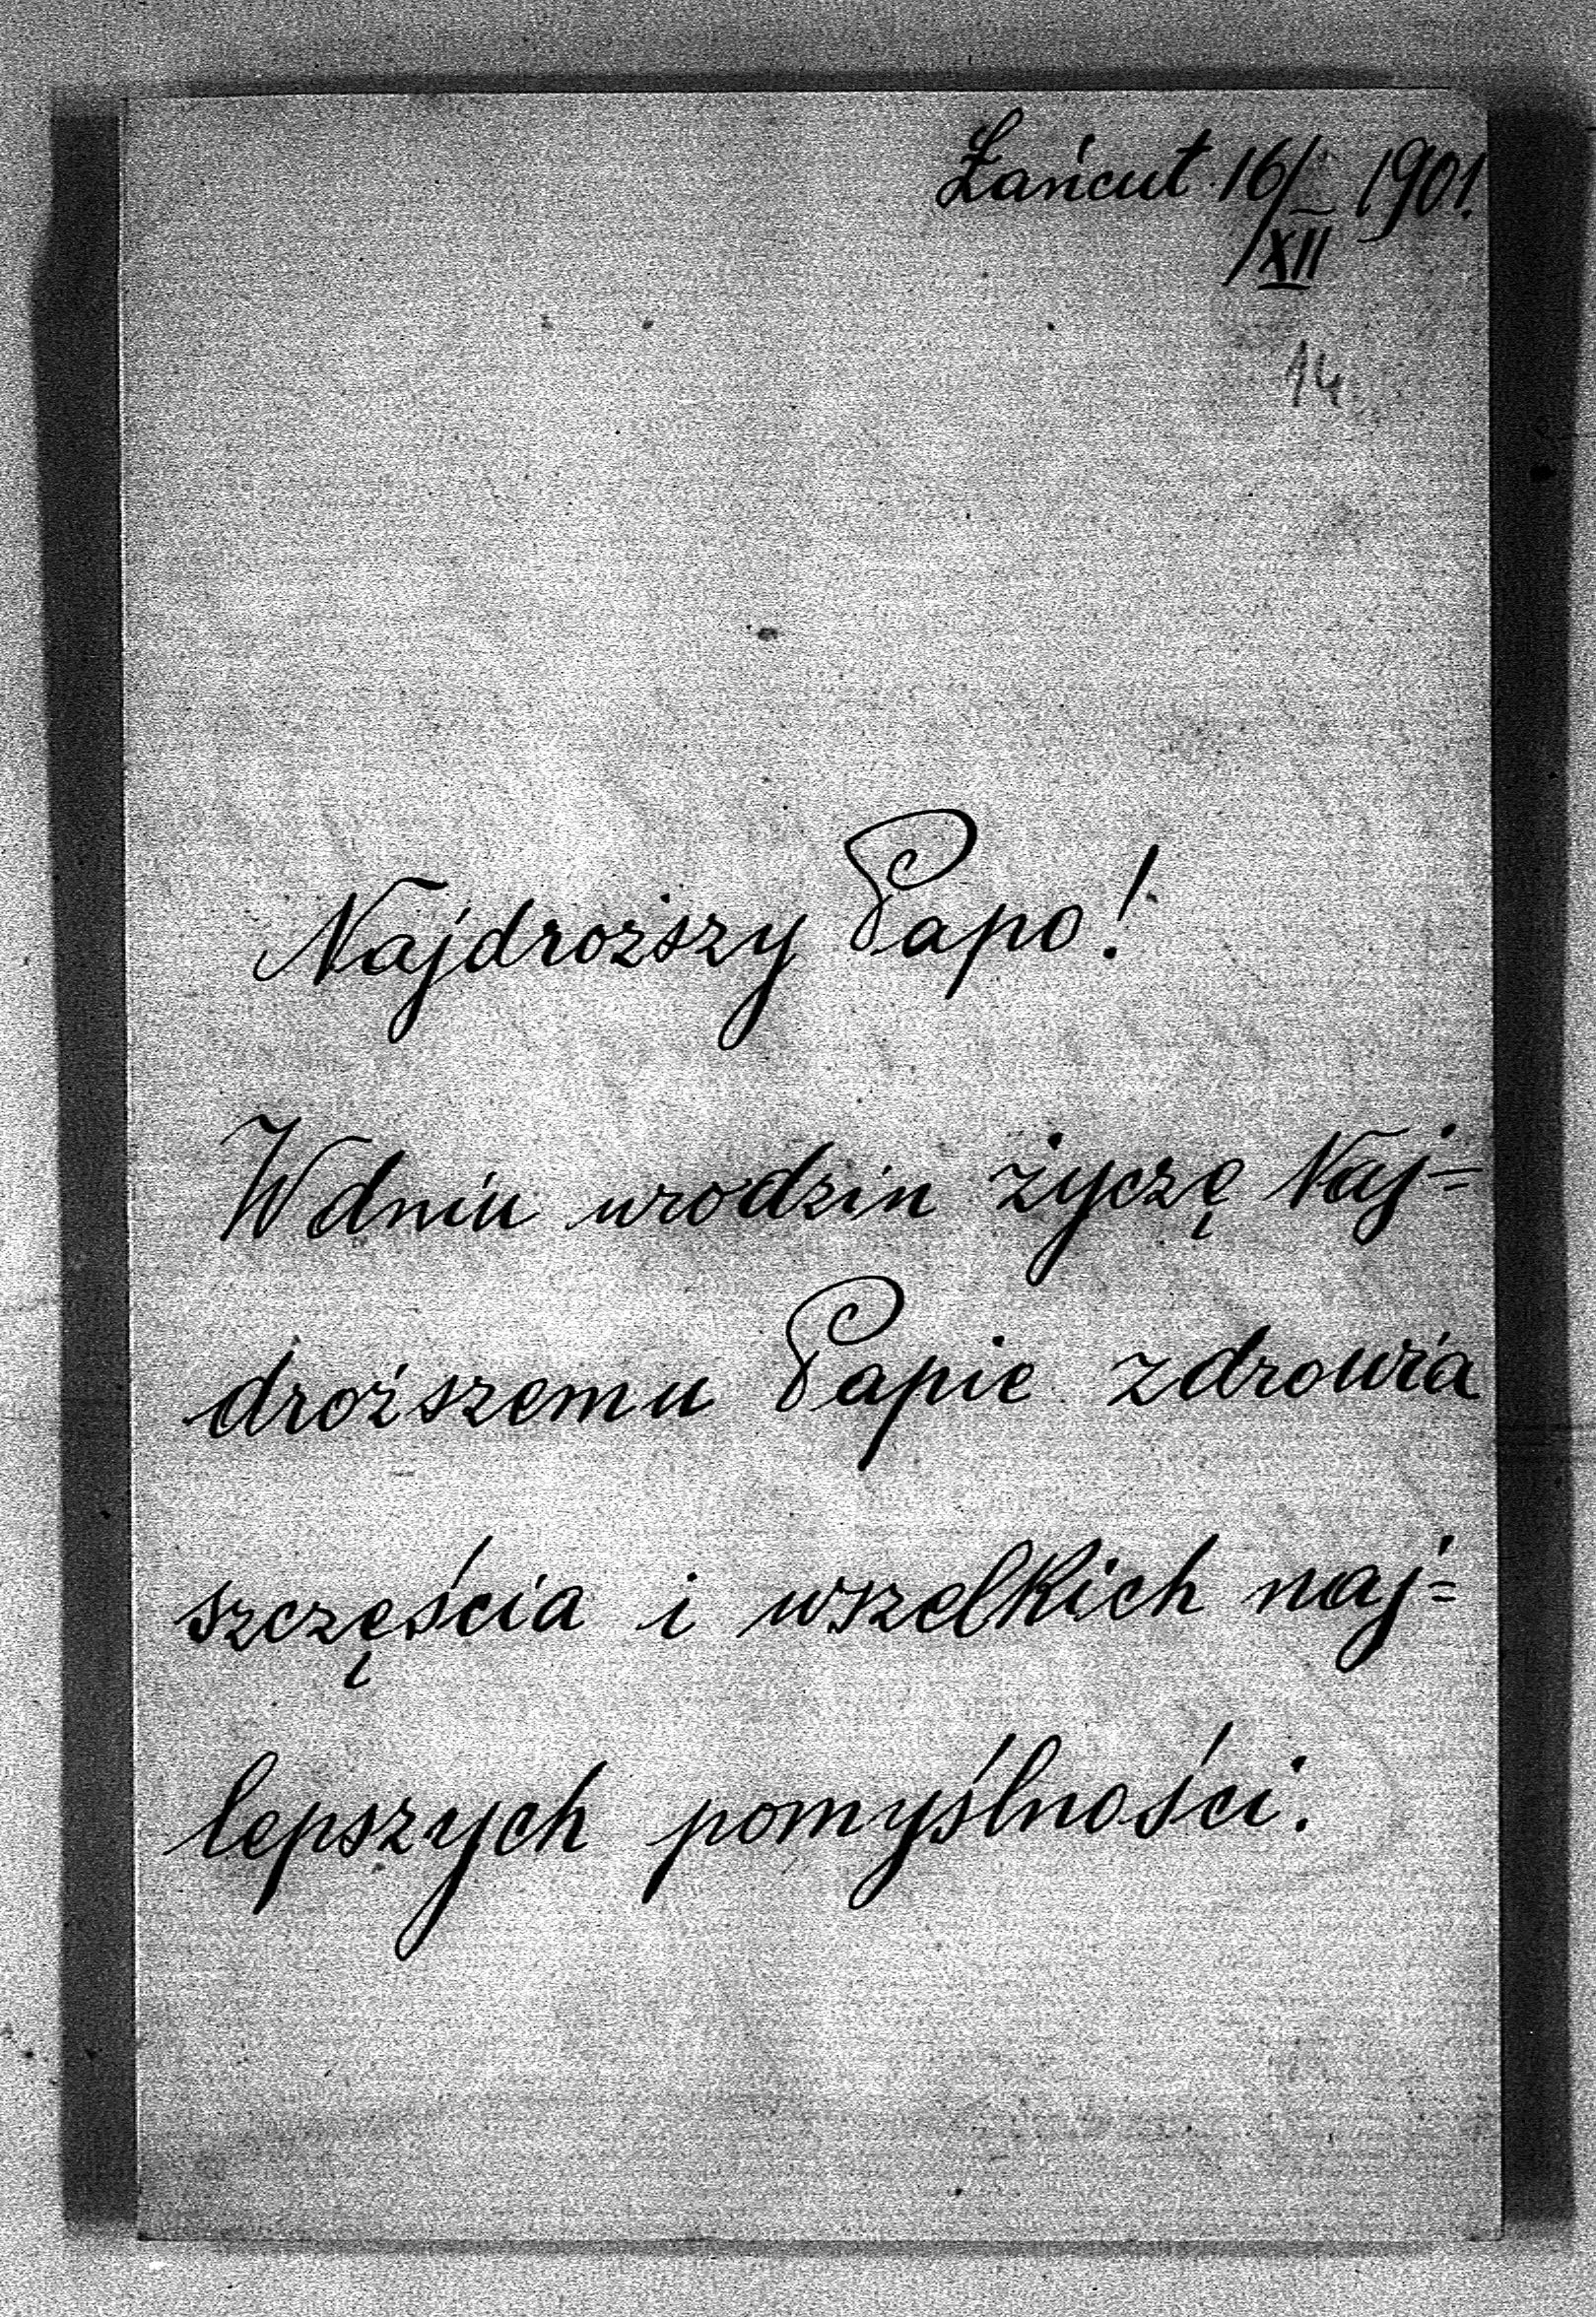 Łańcut 16/XII 1901.
14
Najdroższy Papo!
W dniu urodzin życzę Naj=
droższemu Papie zdrowia
szczęścia i wszelkich naj=
lepszych pomyślności.